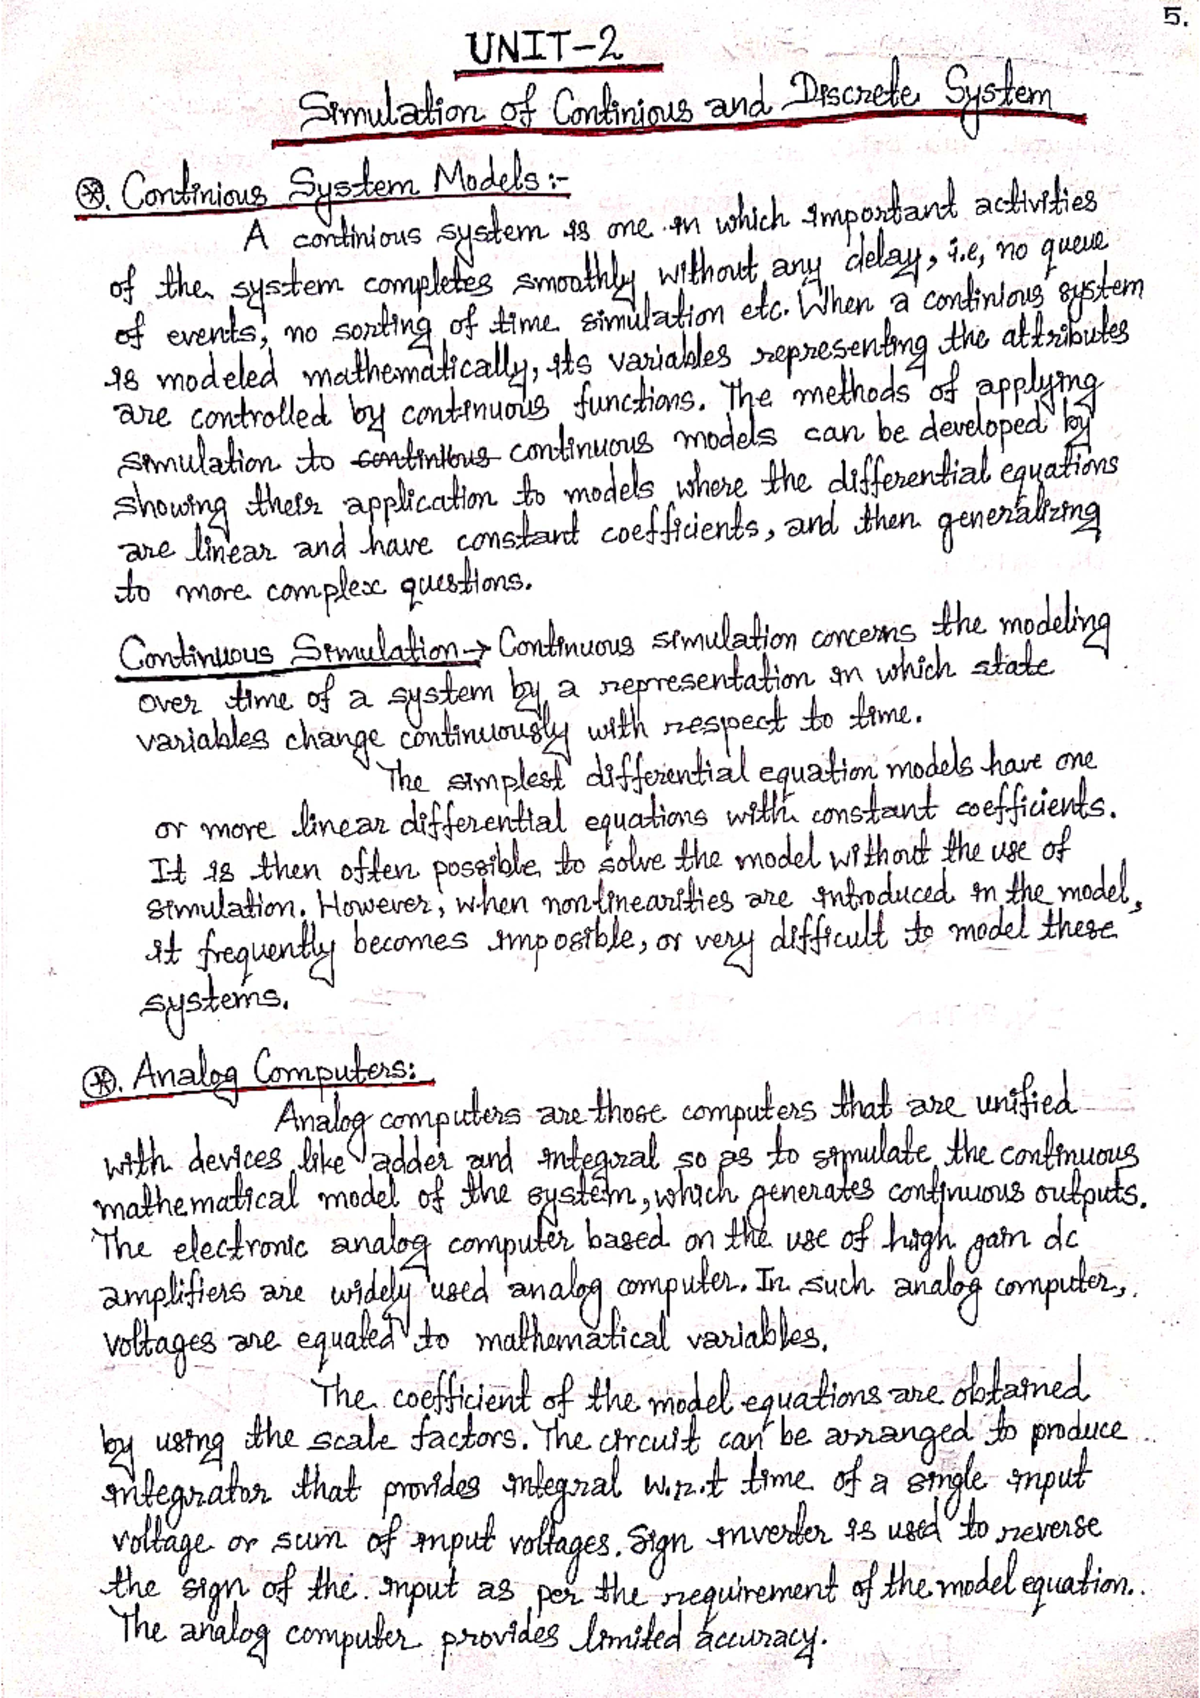 5.
UNIT-2
Simulation of Continious and Discrete System
⊛. Continious System Models:-
A continious system is one in which important activities
of the system completes smoothly without any delay, i.e, no queue
of events, no sorting of time simulation etc. When a continious system
is modeled mathematically, its variables representing the attributes
are controlled by continuous functions. The methods of applying
simulation to continious continuous models can be developed by
showing their application to models where the differential equations
are linear and have constant coefficients, and then generalizing
to more complex questions.
Continuous Simulation→ Continuous simulation concerns the modeling
over time of a system by a representation in which state
variables change continuously with respect to time.
The simplest differential equation models have one
or more linear differential equations with constant coefficients.
It is then often possible to solve the model without the use of
simulation. However, when nonlinearities are introduced in the model,
it frequently becomes impossible, or very difficult to model these
systems.
⊛. Analog Computers:
Analog computers are those computers that are unified
with devices like adder and integral so as to simulate the continuous
mathematical model of the system, which generates continuous outputs.
The electronic analog computer based on the use of high gain dc
amplifiers are widely used analog computer. In such analog computer,
voltages are equated to mathematical variables.
The coefficient of the model equations are obtained
by using the scale factors. The circuit can be arranged to produce
integrator that provides integral w.r.t time of a single input
voltage or sum of input voltages. Sign inverter is used to reverse
the sign of the input as per the requirement of the model equation.
The analog computer provides limited accuracy.